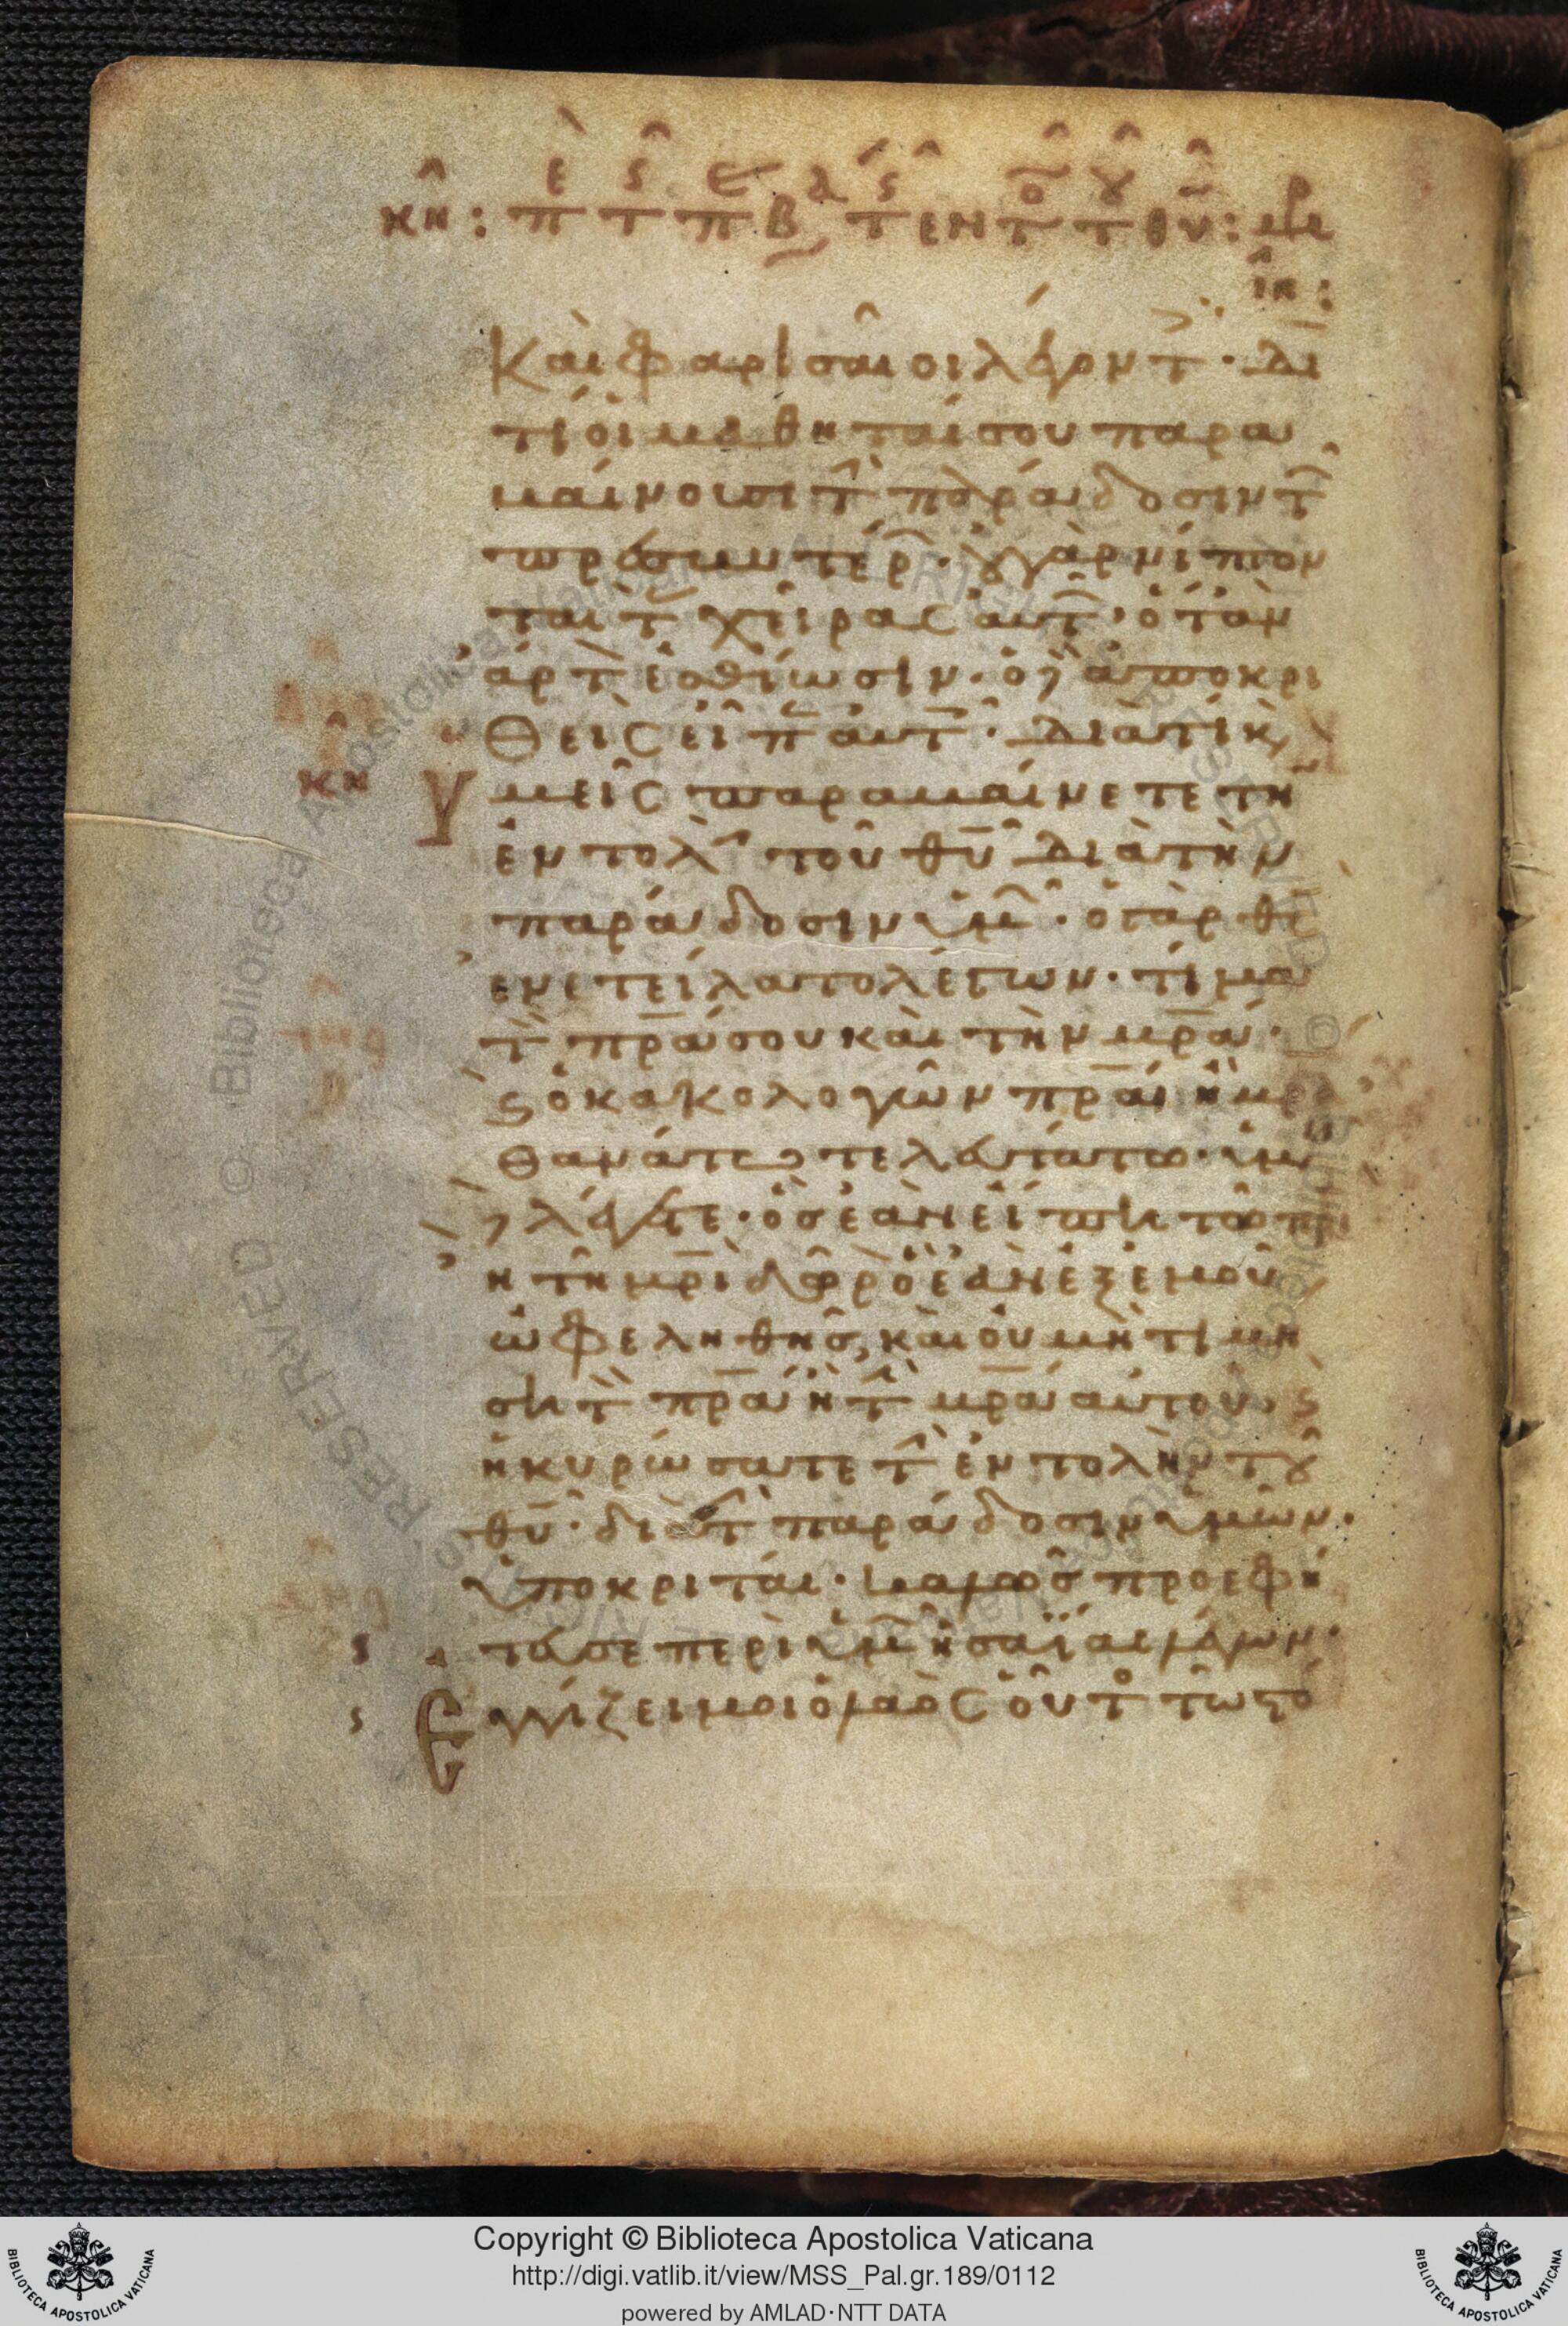 Καὶ φαρισαῖοι λέγοντ· δι
ατί οἱ μαθηταί σου παρα
βαίνουσι τ παράδοσιν τ
πρεσβυτέρ· οὐ γὰρ νίπτον
ται τ χεῖρας αὐτ· ὅταν
ἄρτ ἐσθίωσιν· ὁ δὲ ἀποκρι
θεὶς εἶπ αὐτ· διατί κ
Υμεῖς παραβαίνετε τὴ
ἐντολ τοῦ θυ διὰ τὴν
παράδοσιν ὑμ· ὁ γὰρ θς
ἐνετείλατο λέγων· τίμα
τ πρα σου καὶ τὴν μρα·
κ ὁ κακολογῶν πρα ἢ μρα
θανάτω τελευτάτω· ὑμεις
δὲ λέγετε· ὃς ἐὰν εἴπη τῶ πρι
ἢ τῆ μρι δῶρον ὃ ἐὰν ἐξ ἐμοῦ
ὠφεληθῆς, καὶ οὐ μὴ τιμη
ση τ πρα ἢ τ μρα αὐτου· κ
ἠκυρώσατε τ ἐντολὴν τοῦ
θυ· διὰ τ παράδοσιν ὑμῶν·
ὑποκριταί· καλῶς προεφή
τευσε περὶ ὑμ ἡσαΐας λέγων·
Εγγίζει μοι ὁ λαὸς οὗτ τῶ στό
Copyright © Biblioteca Apostolica Vaticana
http://digi.vatlib.it/view/MSS_Pal.gr.189/0112
powered by AMLAD·NTT DATA
BIBLIOTECA APOSTOLICA VATICANA
BIBLIOTECA APOSTOLICA VATICANA